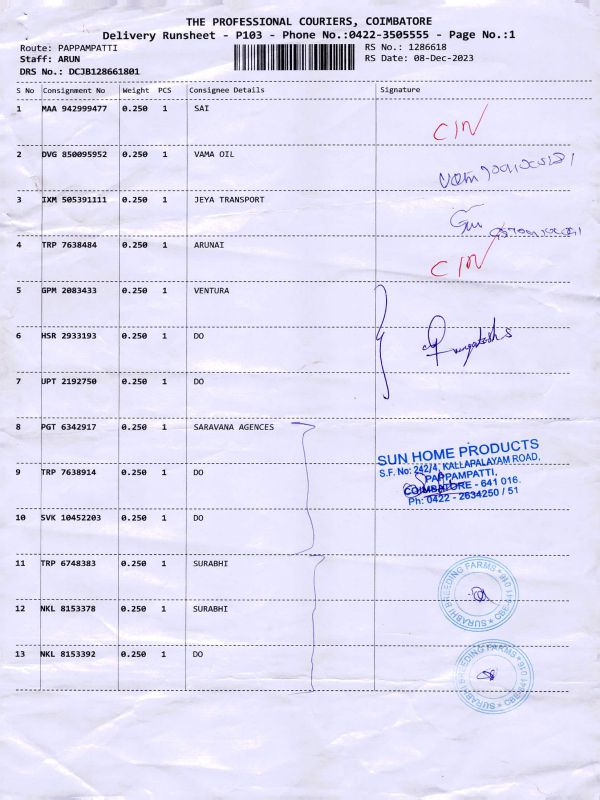 THE PROFESSIONAL COURIERS, COIMBATORE
Delivery Runsheet - P103 - Phone No.:0422-3505555 - Page No.:1
Route: PAPPAMPATTI
RS No.: 1286618
Staff: ARUN
RS Date: 08-Dec-2023
DRS No.: DCJB128661801
S No Consignment No Weight PCS Consignee Details Signature
1 MAA 942999477 0.250 1 SAI
C/N
2 DVG 850095952 0.250 1 VAMA OIL
3 IXM 505391111 0.250 1 JEYA TRANSPORT
4 TRP 7638484 0.250 1 ARUNAI
C/N
5 GPM 2083433 0.250 1 VENTURA
6 HSR 2933193 0.250 1 DO
7 UPT 2192750 0.250 1 DO
8 PGT 6342917 0.250 1 SARAVANA AGENCES
SUN HOME PRODUCTS
S.F. No: 242/4, KALLAPALAYAM ROAD,
PAPPAMPATTI,
COIMBATORE - 641 016.
Ph: 0422 - 2634250 / 51
9 TRP 7638914 0.250 1 DO
10 SVK 10452203 0.250 1 DO
11 TRP 6748383 0.250 1 SURABHI
SURABHI BREEDING FARMS * CBE-641 016 *
12 NKL 8153378 0.250 1 SURABHI
13 NKL 8153392 0.250 1 DO
SURABHI BREEDING FARMS * CBE-641 016 *